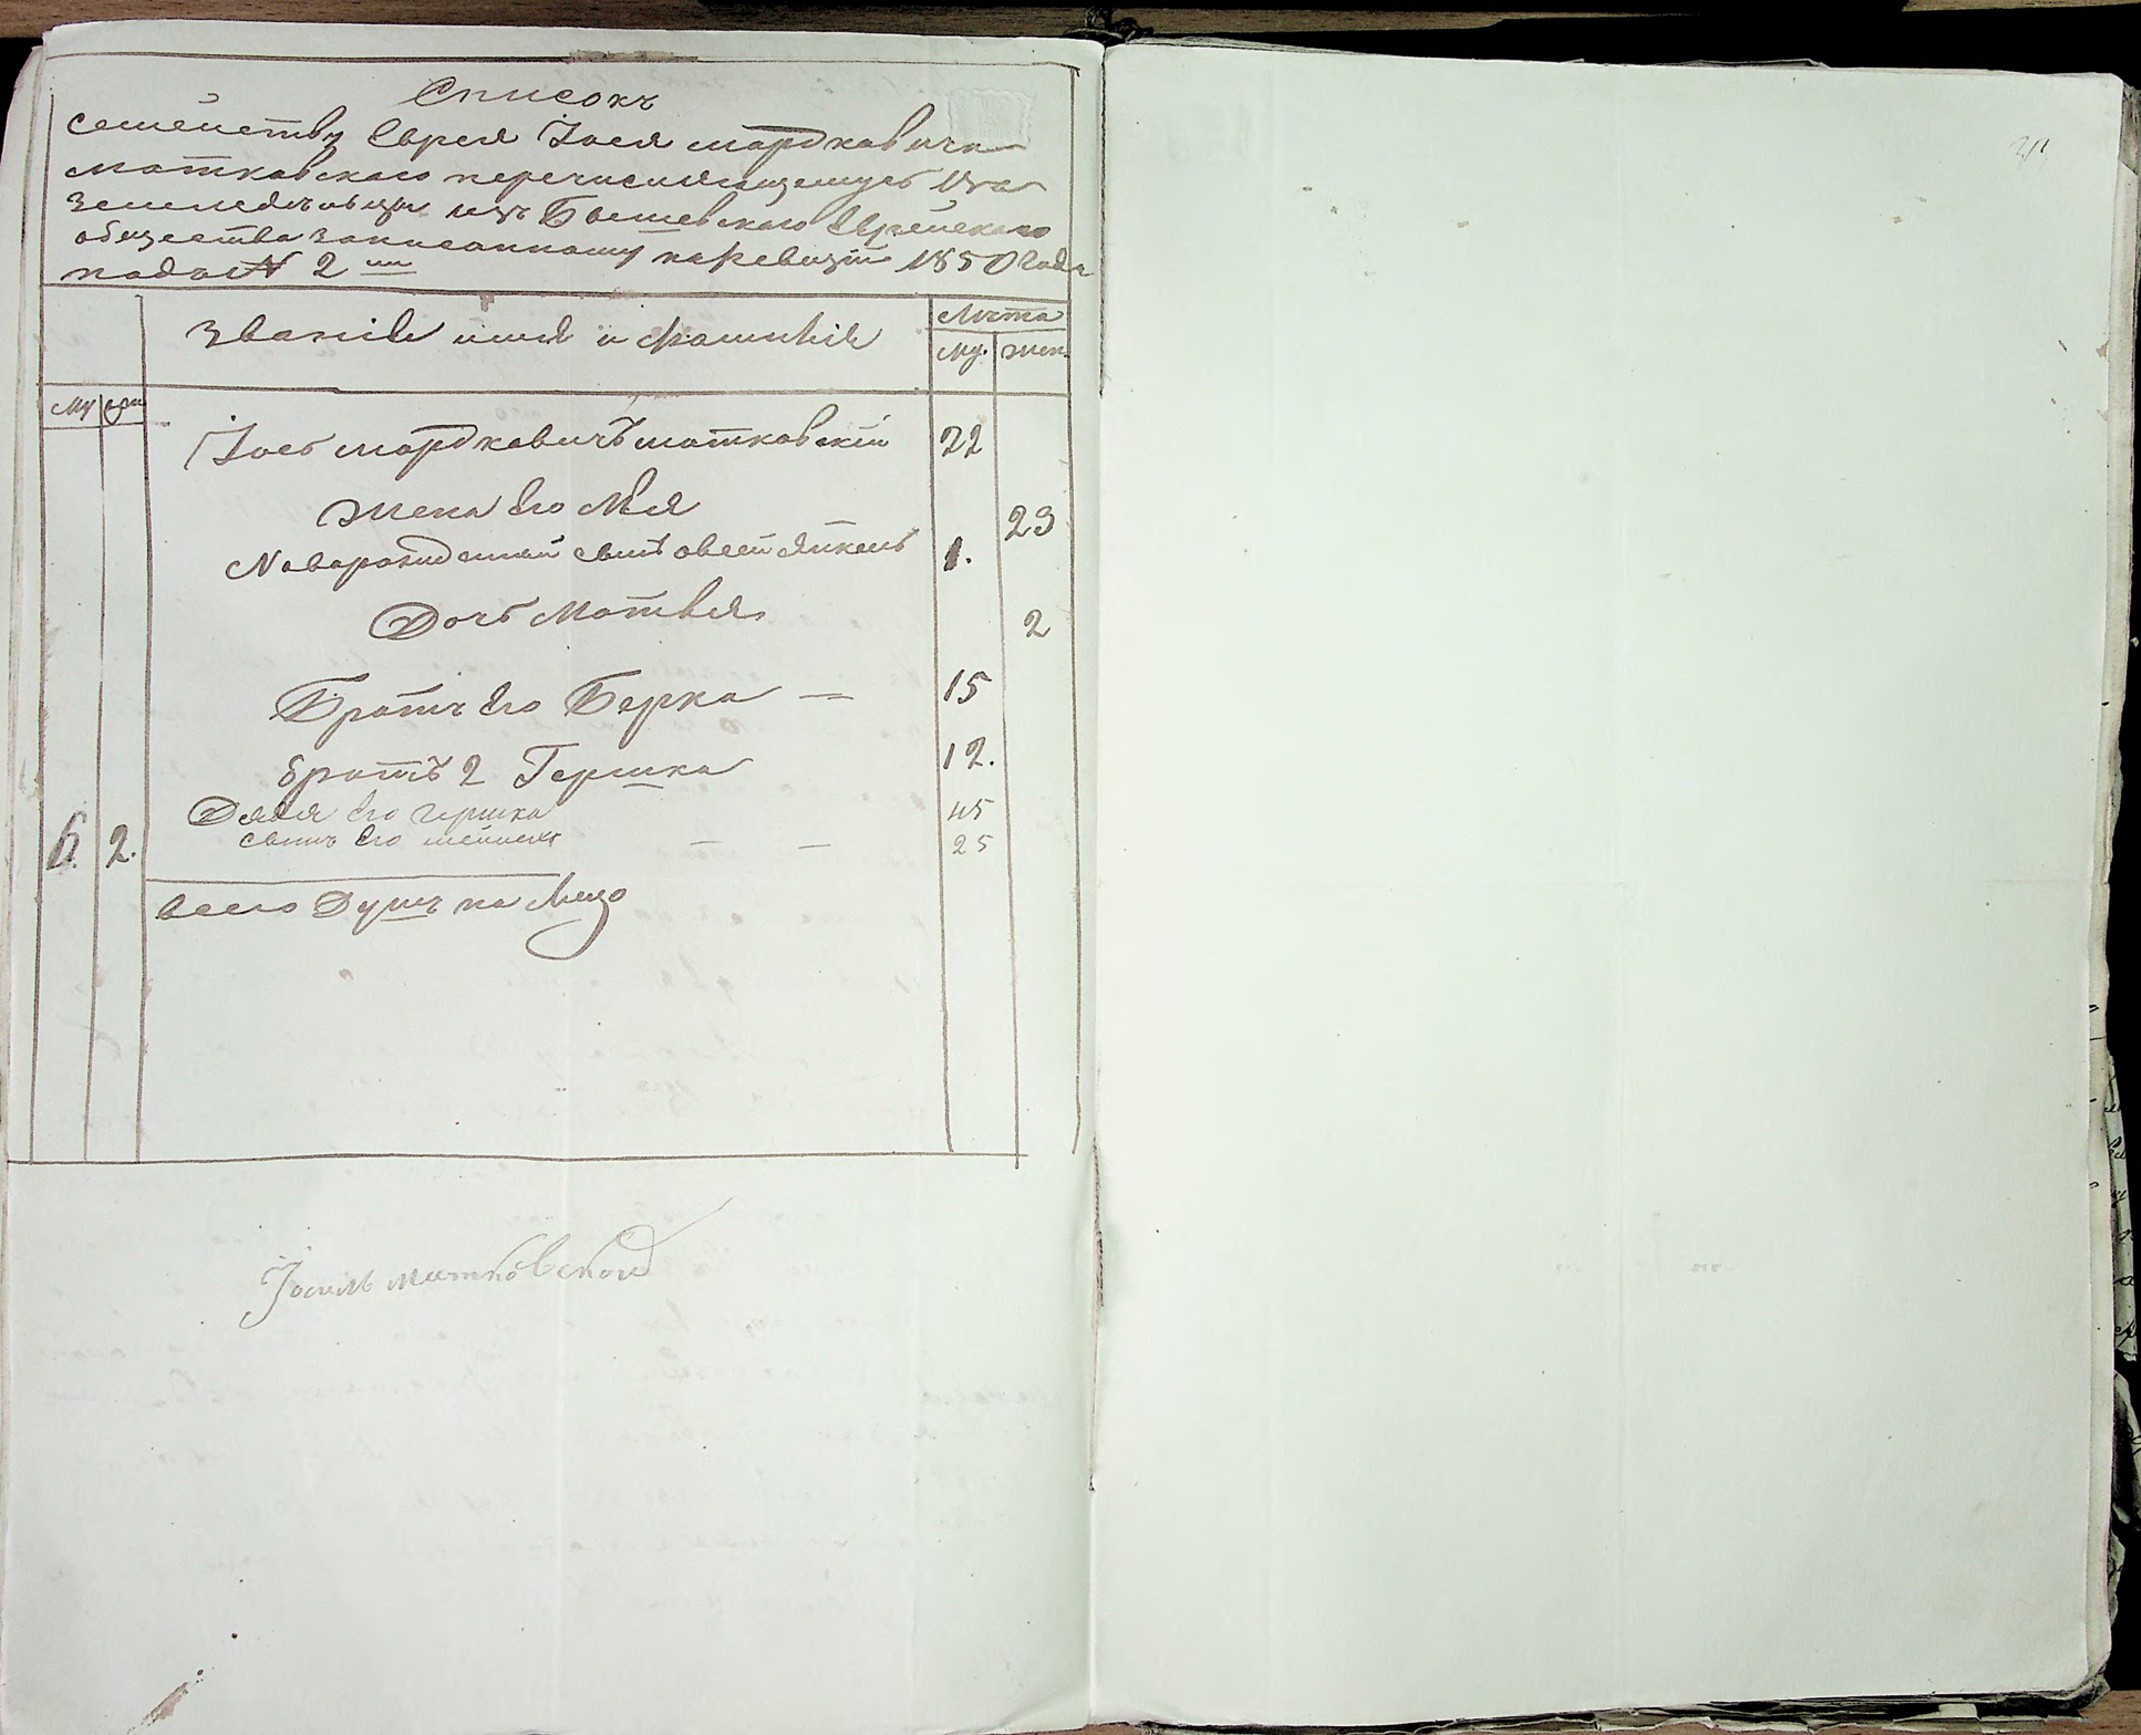 Списокъ
Семейству Еврея Іося Мордковича
Матковского перечисляющемусь
земледельцы изъ Бышевского Еврейского
общества записанному по ревизіи 1850 года
подъ № 2мъ
Званіе имя и Фамилія
Лѣта
Му. Жен.
Му
Іось Мордковичъ Матковскій 22
Жена его 23
Новорожденный сынъ Янкель 1.
Дочь 2
Братъ его Берка — 15
братъ 2 Гершка 12.
Дядя его Гершка 45
6. 2. сынъ его — — 25
всего Душъ на Лицо
Іосиль Матковской